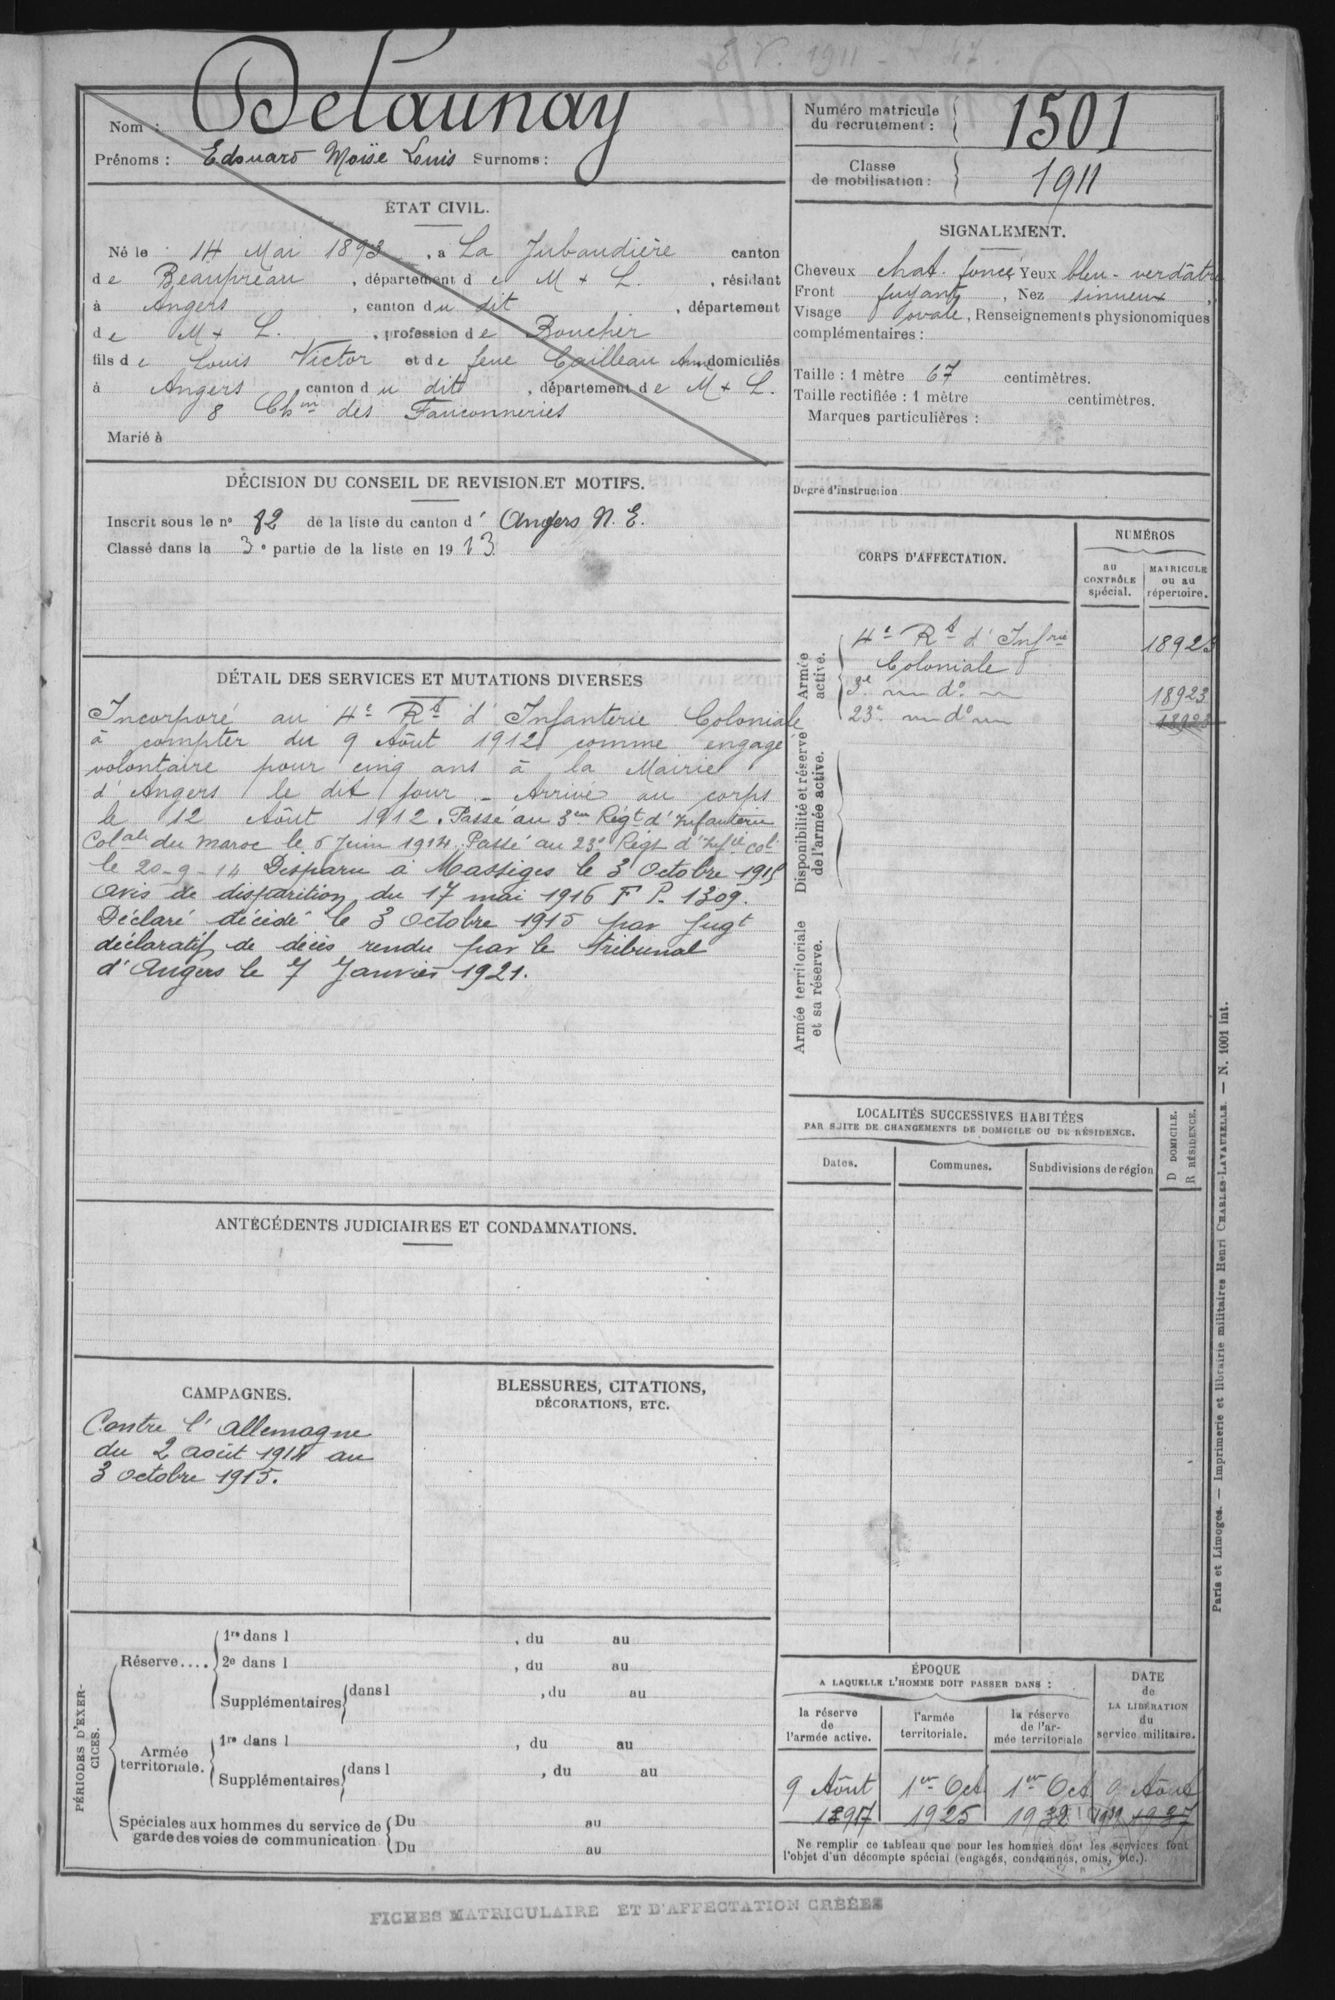 E. V. 1911 - 47.
Nom : Delaunay
Prénoms : Edouard Moïse Louis Surnoms :
Numéro matricule
du recrutement : 1501
Classe
de mobilisation : 1911
ÉTAT CIVIL.
Né le 14 Mai 1893, à La Jubaudière canton
de Beaupréau, département de M & L., résidant
à Angers, canton du dit, département
de M & L., profession de Boucher
fils de Louis Victor et de feue Cailleau Anne domiciliés
à Angers canton du dit, département de M & L.
8 Chin des Fauconneries
Marié à
SIGNALEMENT.
Cheveux chat. foncé Yeux bleu-verdâtre
Front fuyant, Nez sinueux,
Visage ovale, Renseignements physionomiques
complémentaires :
Taille : 1 mètre 67 centimètres.
Taille rectifiée : 1 mètre centimètres.
Marques particulières :
Degré d'instruction
DÉCISION DU CONSEIL DE REVISION ET MOTIFS.
Inscrit sous le nº 82 de la liste du canton d' Angers N. E.
Classé dans la 3e partie de la liste en 1913
DÉTAIL DES SERVICES ET MUTATIONS DIVERSES
Incorporé au 4e Rt d'Infanterie Coloniale
à compter du 9 Aôut 1912 comme engagé
volontaire pour cinq ans à la Mairie
d'Angers le dit jour - Arrivé au corps
le 12 Aôut 1912. Passé au 3me Régt d'Infanterie
Colale du Maroc le 6 Juin 1914. Passé au 23e Régt d'Infie Col.
le 20-9-14 Disparu à Massiges le 3 Octobre 1915
Avis de disparition du 17 mai 1916 F P. 1309.
Déclaré décédé le 3 Octobre 1915 par jugt
déclaratif de décès rendu par le tribunal
d'Angers le 7 Janvier 1921.
CORPS D'AFFECTATION.
NUMÉROS
au
CONTRÔLE
spécial.
MATRICULE
ou au
répertoire.
Armée
active.
4e Rt d'Infrie 18923
Coloniale
3e — do — 18923
23e — do — 18923
Disponibilité et réserve
de l'armée active.
Armée territoriale
et sa réserve.
LOCALITÉS SUCCESSIVES HABITÉES
PAR SUITE DE CHANGEMENTS DE DOMICILE OU DE RÉSIDENCE.
Dates.
Communes.
Subdivisions de région
D DOMICILE.
R RÉSIDENCE.
ANTÉCÉDENTS JUDICIAIRES ET CONDAMNATIONS.
CAMPAGNES.
Contre l'Allemagne
du 2 août 1914 au
3 octobre 1915.
BLESSURES, CITATIONS,
DÉCORATIONS, ETC.
PÉRIODES D'EXER-
CICES.
Réserve....
1re dans l , du au
2e dans l , du au
Supplémentaires dans l , du au
Armée
territoriale.
1re dans l , du au
Supplémentaires dans l , du au
Spéciales aux hommes du service de
garde des voies de communication
Du au
Du au
ÉPOQUE
A LAQUELLE L'HOMME DOIT PASSER DANS :
la réserve
de
l'armée active.
l'armée
territoriale.
la réserve
de l'ar-
mée territoriale
DATE
de
LA LIBÉRATION
du
service militaire.
9 Aôut 1er Oct 1er Oct 9 Aôut
1917 1925 1932 1937
Ne remplir ce tableau que pour les hommes dont les services font
l'objet d'un décompte spécial (engagés, condamnés, omis, etc.).
Paris et Limoges. — Imprimerie et librairie militaires Henri CHARLES-LAVAUZELLE. — N. 1001 int.
FICHES MATRICULAIRE ET D'AFFECTATION CRÉÉES